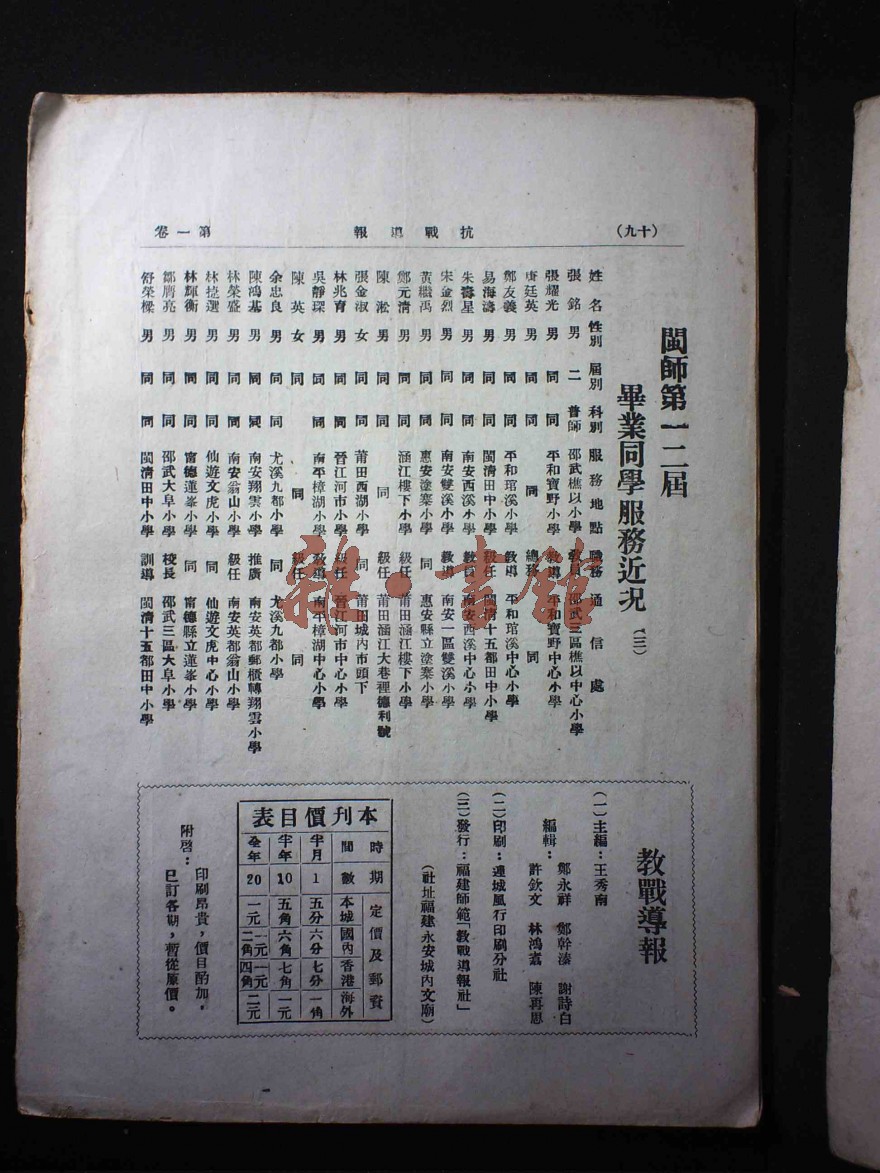 (十九)
抗戰導報
第一卷
閩師第一二屆
畢業同學服務近況(三)
姓名 性別 屆別 科別 服務地點 職務 通信處
張銘 男 二 普師 邵武樵以小學 教員 邵武三區樵以中心小學
張耀光 男 同 同 平和寶野小學 教導 平和寶野中心小學
唐廷英 男 同 同 同 總務 同
鄭友義 男 同 同 平和琯溪小學 教導 平和琯溪中心小學
易海濤 男 同 同 閩清田中小學 級任 閩清十五都田中小學
朱壽星 男 同 同 南安西溪小學 教員 南安西溪中心小學
宋金烈 男 同 同 南安雙溪小學 教導 南安一區雙溪小學
黃繼禹 男 同 同 惠安塗寨小學 同 惠安縣立塗寨小學
鄭元清 男 同 同 涵江樓下小學 級任 莆田涵江樓下小學
陳淞 男 同 同 同 級任 莆田涵江大巷裡德利號
張金淑 女 同 同 莆田西湖小學 同 莆田城內市頭下
林兆育 男 同 同 晉江河市小學 級任 晉江河市中心小學
吳靜琛 男 同 同 南平樟湖小學 教導 南平樟湖中心小學
陳英 女 同 同 級任 同
余忠良 男 同 同 尤溪九都小學 同 尤溪九都小學
陳鴻基 男 同 同 南安翔雲小學 推廣 南安英都郵櫃轉翔雲小學
林榮盛 男 同 同 南安翁山小學 級任 南安英都翁山小學
林捷選 男 同 同 仙遊文虎小學 同 仙遊文虎中心小學
林輝衡 男 同 同 寧德蓮峯小學 同 寧德縣立蓮峯小學
鄒膺亮 男 同 同 邵武大阜小學 校長 邵武三區大阜小學
舒榮樑 男 同 同 閩清田中小學 訓導 閩清十五都田中小學
教戰導報
(一)主編:王秀南
編輯:鄭永祥 鄭幹溱 謝詩白
許欽文 林鴻嘉 陳再思
(二)印刷:連城風行印刷分社
(三)發行:福建師範「教戰導報社」
(社址福建永安城內文廟)
本刊價目表
時期 定價及郵資
間數 本城 國內 香港 海外
半月 1 五分 六分 七分 一角
半年 10 五角 六角 七角 一元
全年 20 一元 一元二角 一元四角 二元
附啓:
印刷昂貴,價目酌加,
已訂各期,暫從原價。
雅·書館